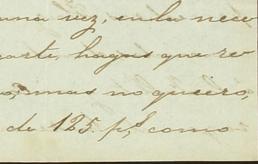 una vez, en la nece
parte, hagas que re
o, mas no quiero,
de 125. p.s como